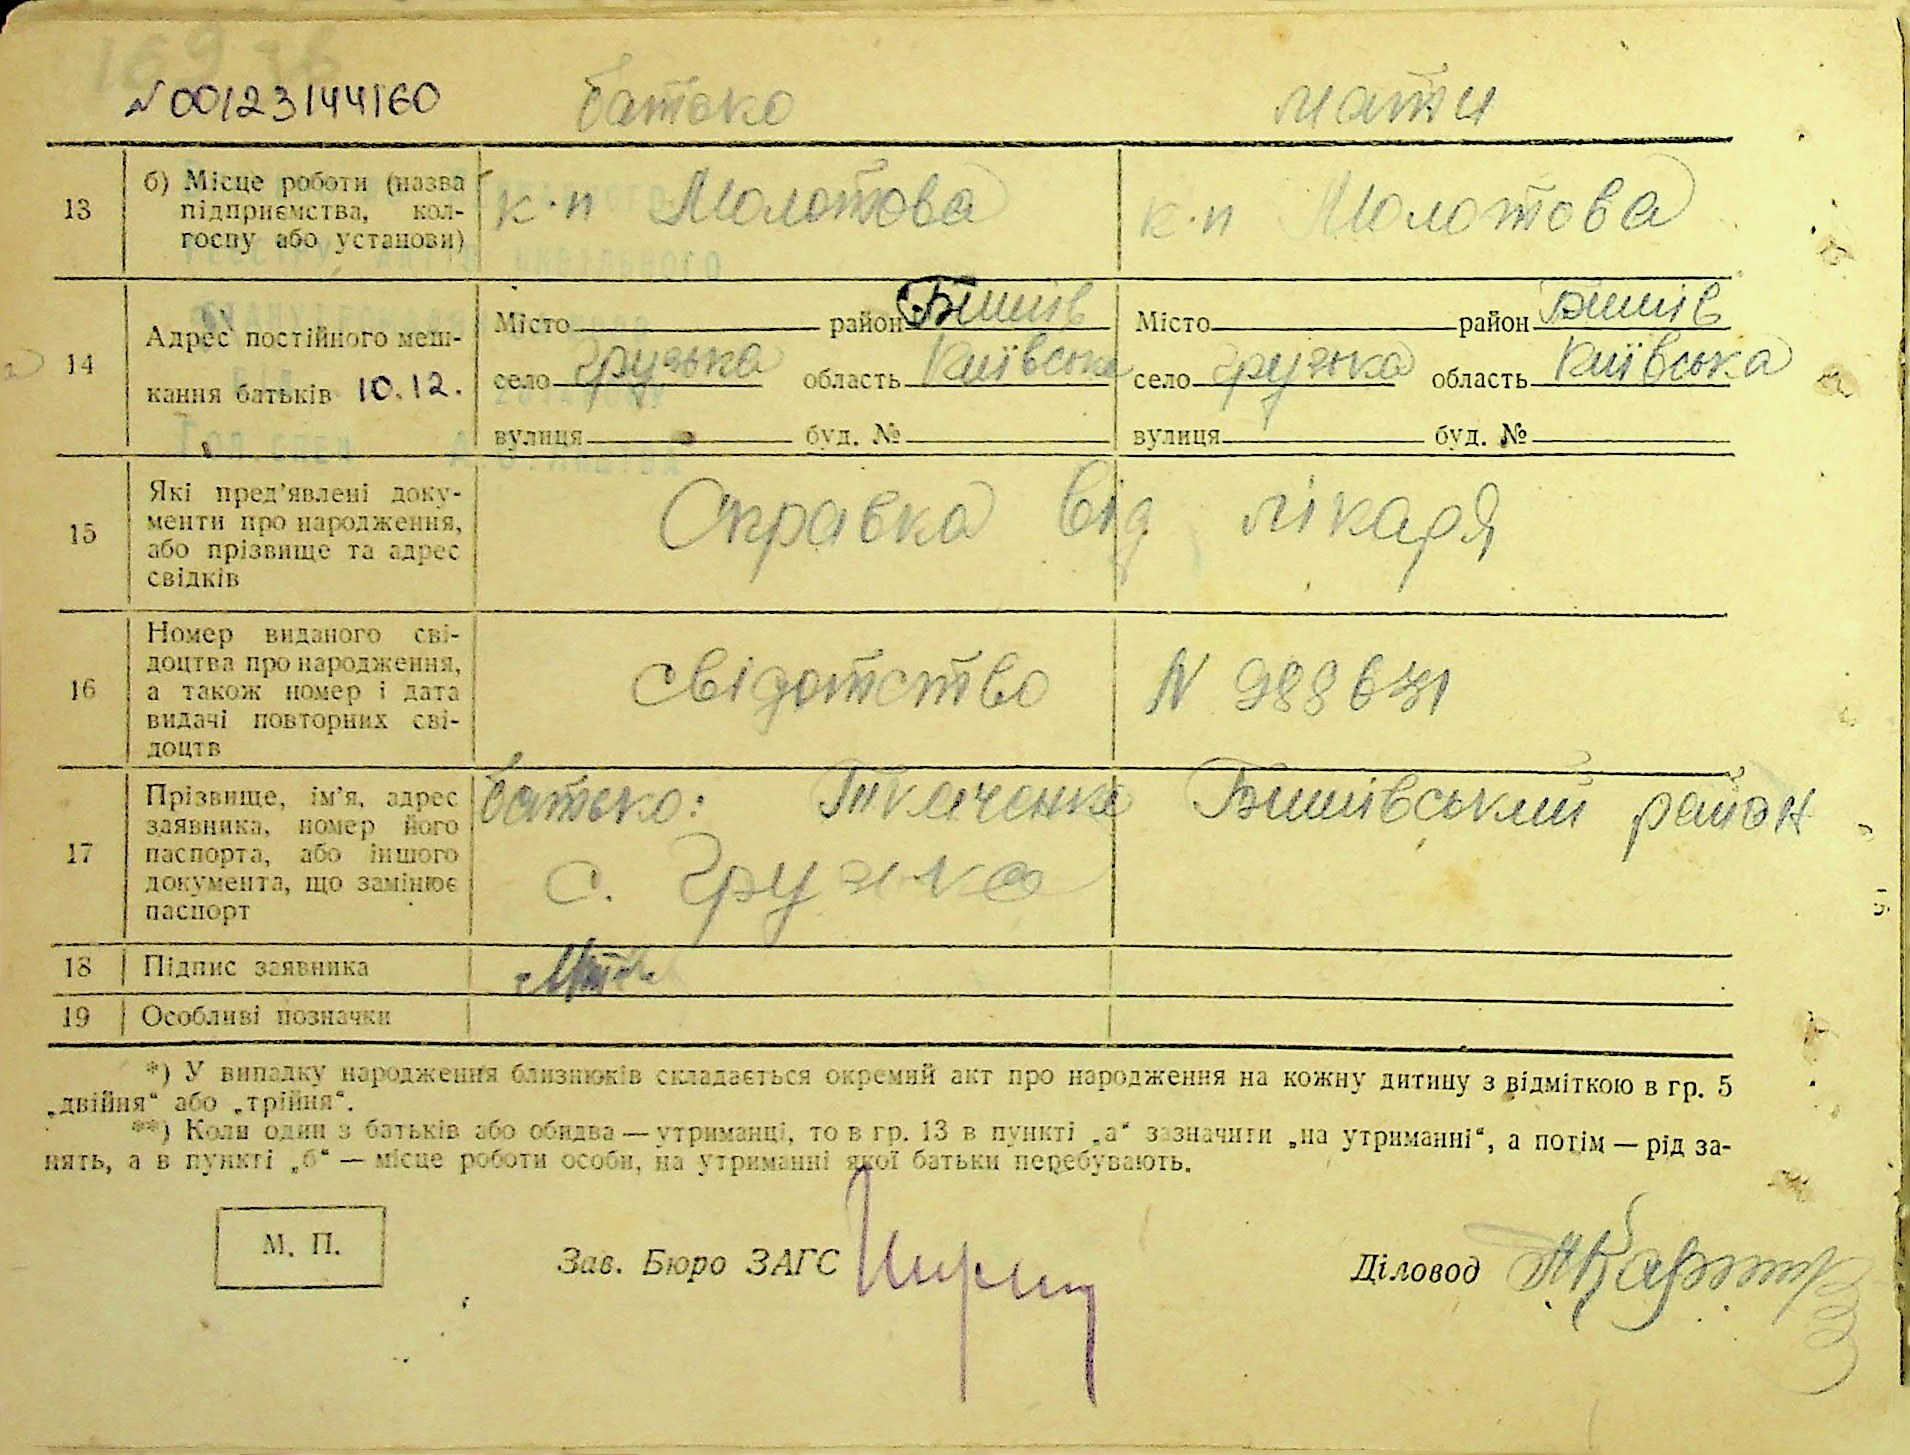 N00123144160 батько мати
13 б) Місце роботи (назва підприємства, кол-
госпу або установи)
к.п Молотова к.п Молотова
14 Адрес постійного меш-
кання батьків 10.12.
Місто район Бишів Місто район Бишів
село Грузька область Київська село Грузька область Київська
вулиця буд. № вулиця буд. №
15 Які пред'явлені доку-
менти про народження,
або прізвище та адрес
свідків
Справка від лікаря
16 Номер виданого сві-
доцтва про народження,
а також номер і дата
видачі повторних сві-
доцтв
свідотство N
17 Прізвище, ім'я, адрес
заявника, номер його
паспорта, або іншого
документа, що замінює
паспорт
батько: Ткаченко Бишівський район
с. Грузька
18 Підпис заявника
19 Особливі позначки
*) У випадку народження близнюків складається окремий акт про народження на кожну дитину з відміткою в гр. 5
„двійня“ або „трійня“.
**) Коли один з батьків або обидва — утриманці, то в гр. 13 в пункті „а“ зазначити „на утриманні“, а потім — рід за-
нять, а в пункті „б“ — місце роботи особи, на утриманні якої батьки перебувають.
М. П.
Зав. Бюро ЗАГС Діловод